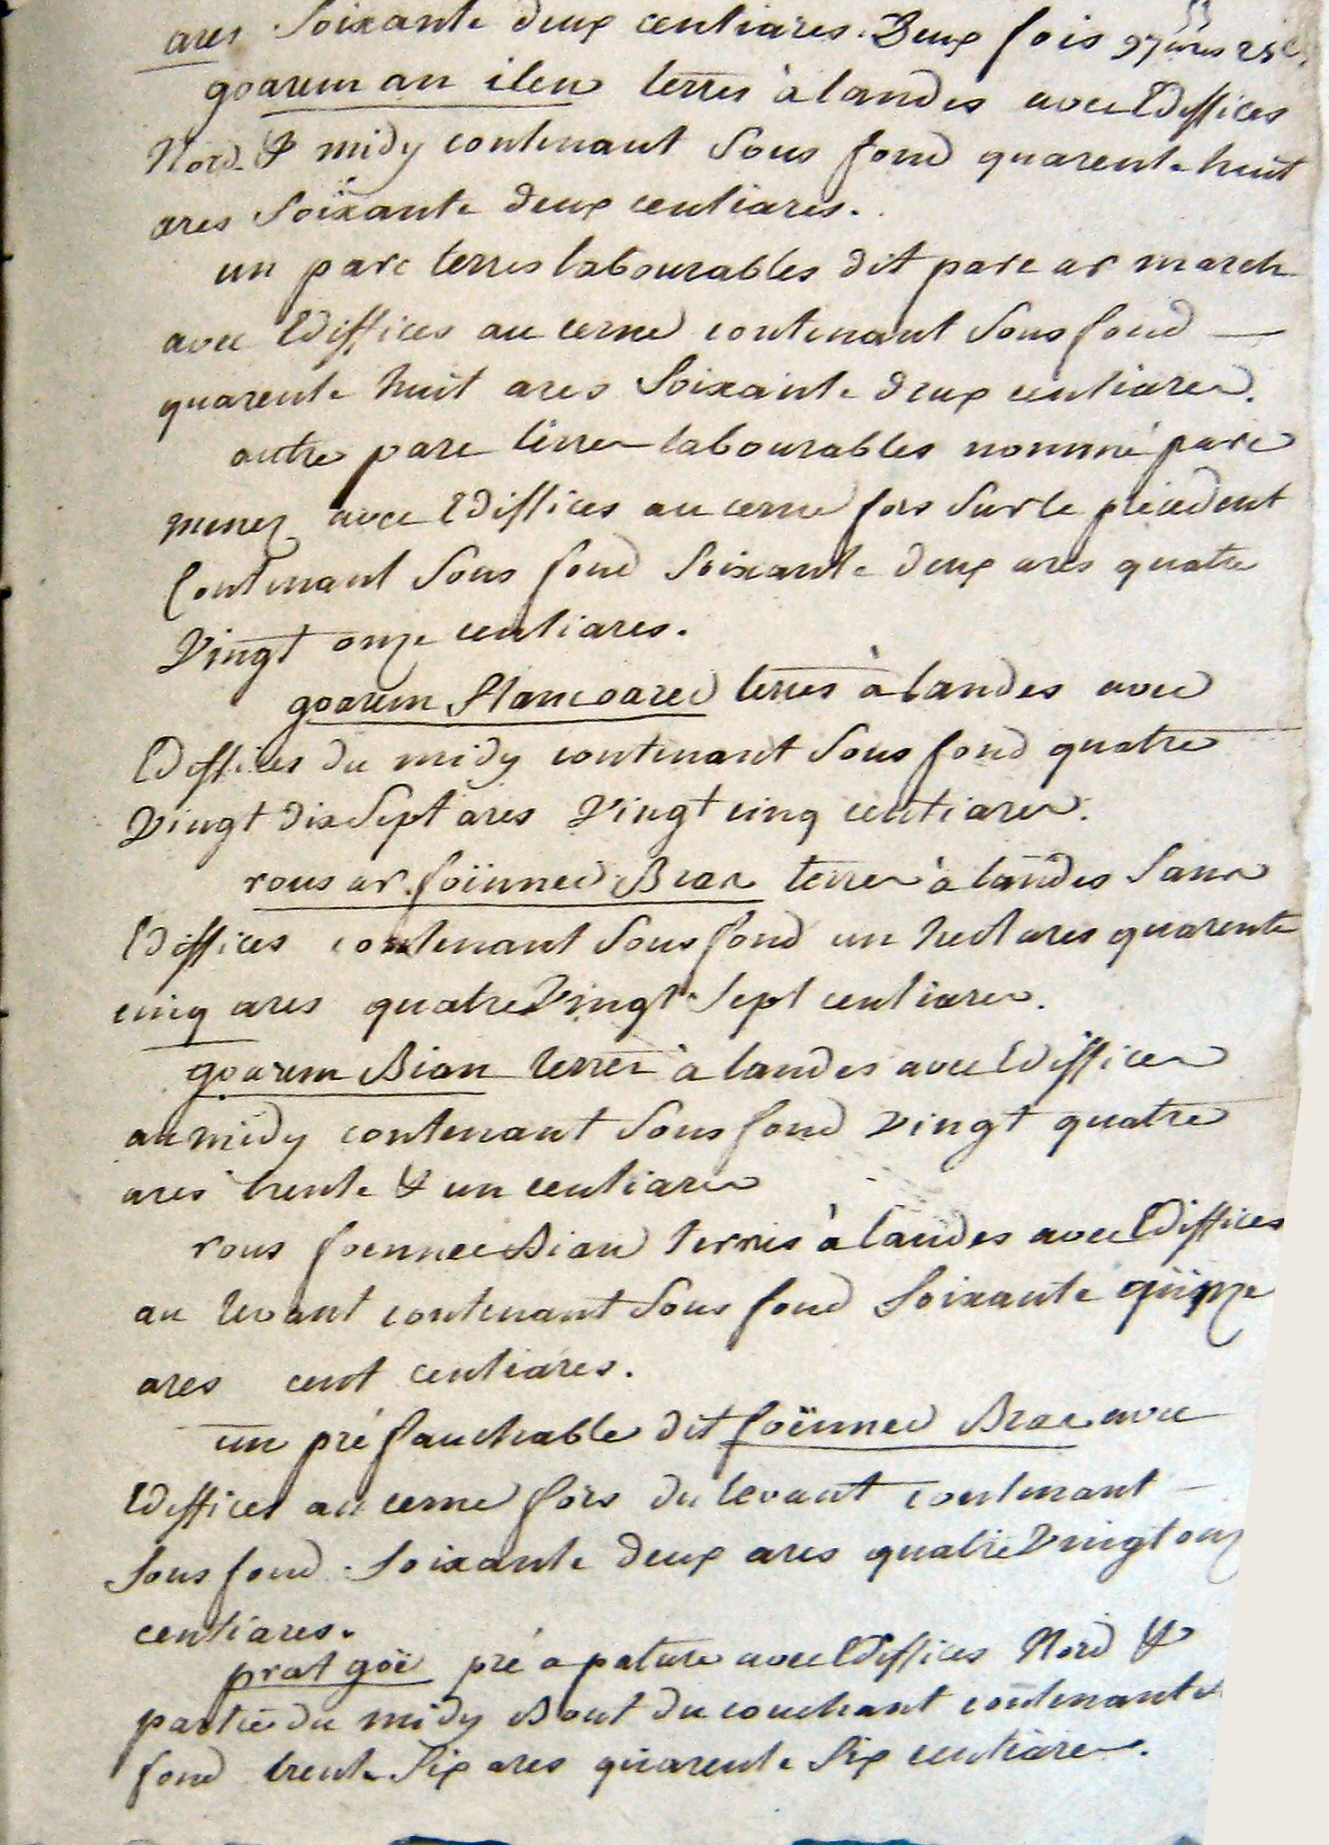 ares Soixante deux centiares. Deux fois 97 ares 25 c.
goarem an ilen terres à landes avec Ediffices
Nord & midy contenant Sous fond quarente huit
ares Soixante deux centiares.
un parc terres labourables dit parc ar march
avec Ediffices au cerne contenant Sous fond —
quarente huit ares Soixante deux centiares.
autre parc terres labourables nommé parc
menez avec Ediffices au cerne fors Sur le précédent
Contenant Sous fond Soixante deux ares quatre
Vingt onze centiares.
goarem Stancoared terres à landes avec
Ediffices du midy contenant Sous fond quatre
Vingt dix Sept ares Vingt cinq centiares.
rous ar foünnec Bras terres à landes Sans
Ediffices contenant Sous fond un hectares quarente
cinq ares quatre Vingt Sept centiares.
goarem Bian terres à landes avec Ediffices
au midy contenant Sous fond Vingt quatre
ares trente & un centiares
rous foennec Bian terres à landes avec Ediffices
au levant contenant Sous fond Soixante quinze
ares cent centiares.
un pré fauchable dit foënnec Bras avec
Ediffices au cerne fors du levant contenant —
Sous fond Soixante deux ares quatre Vingt onz
centiares.
prat goë pré a pature avec Ediffices Nord &
partie du midy Bout du couchant contenant s
fond trente Six ares quarente Six centiares.